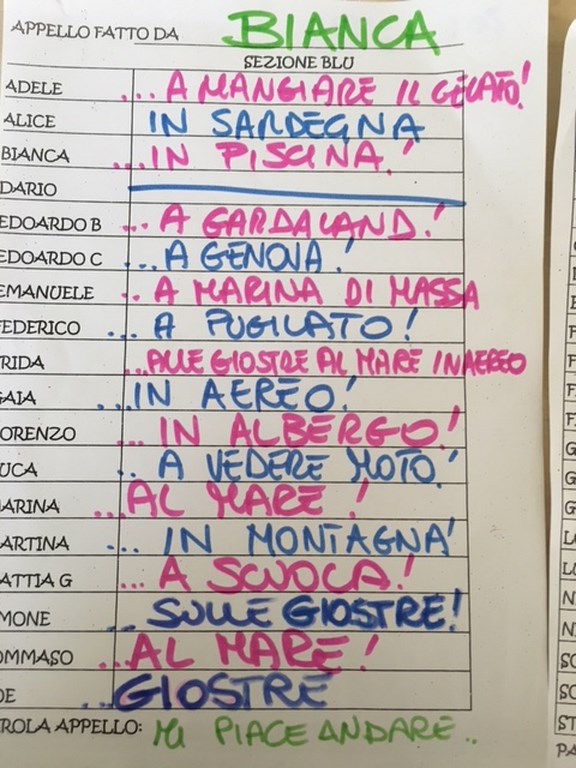 APPELLO FATTO DA BIANCA
SEZIONE BLU
ADELE ... A MANGIARE IL GELATO!
ALICE IN SARDEGNA
BIANCA ...IN PISCINA.!
DARIO
EDOARDO B ... A GARDALAND.!
EDOARDO C ...A GENOVA.!
EMANUELE .. A MARINA DI MASSA
FEDERICO ... A PUGILATO!
RIDA ...ALLE GIOSTRE AL MARE IN AEREO
GAIA ...IN AEREO!
ORENZO ... IN ALBERGO!
UCA .. A VEDERE MOTO.!
ARINA ...AL MARE !
ARTINA ... IN MONTAGNA!
ATTIA G ... A SCUOLA!
MONE .. SULLE GIOSTRE!
OMMASO ...AL MARE!
OE ...GIOSTRE
ROLA APPELLO: MI PIACE ANDARE..